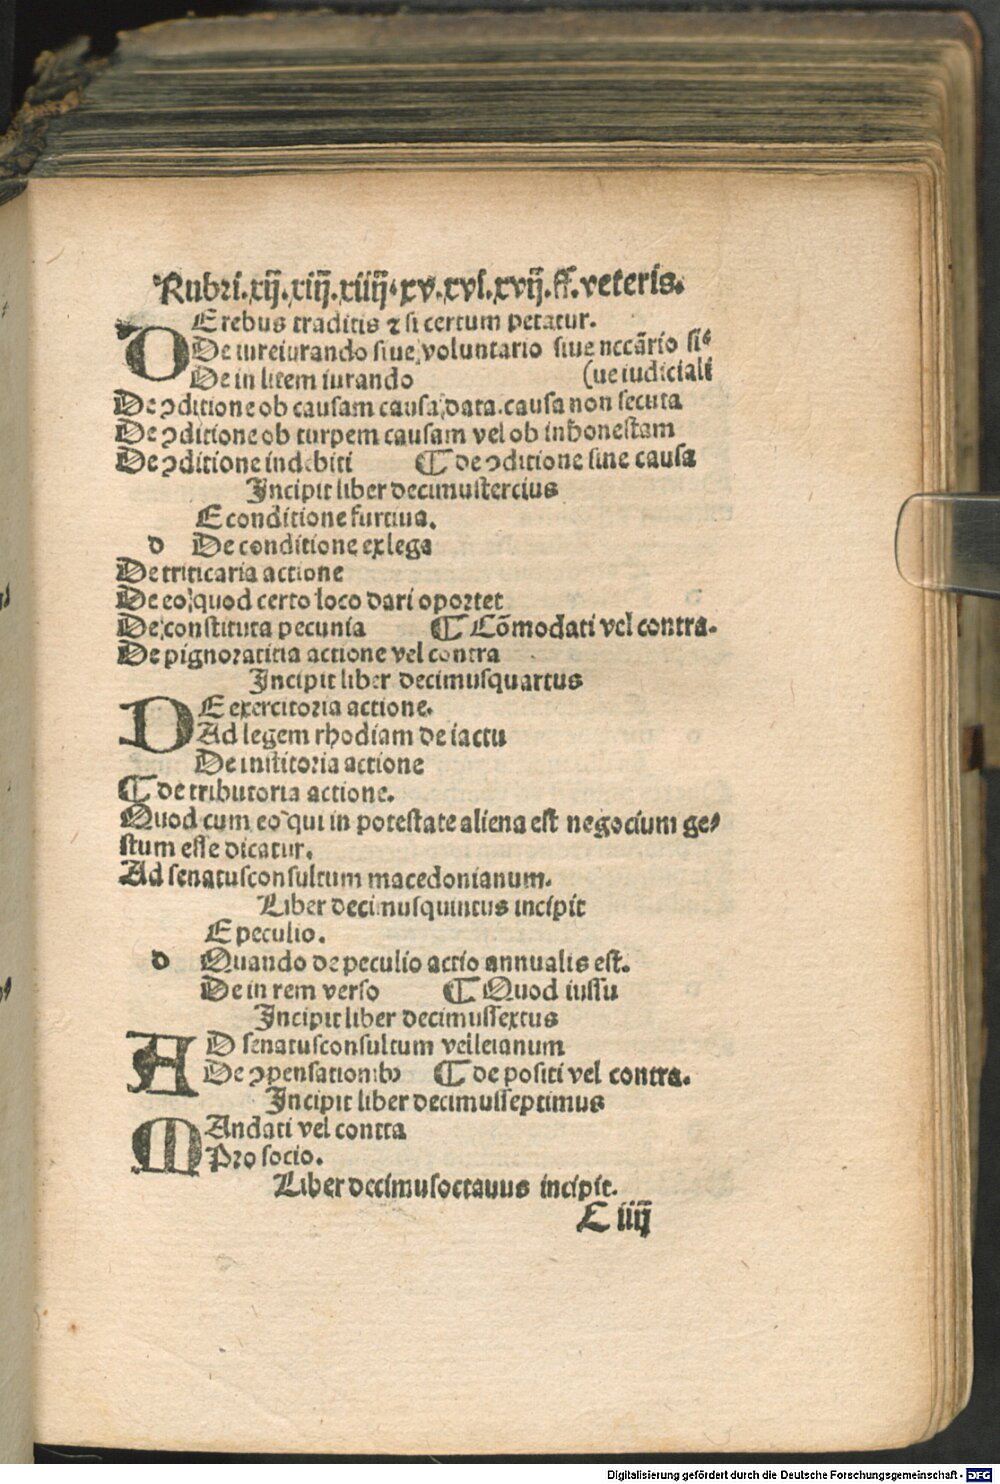 Rubri.xij.xiij.xiiij.xv.xvi.xvij.ff.veteris.
DE rebus traditis ⁊ si certum petatur.
De iureiurando siue voluntario siue nccãrio si⸗
De in litem iurando (ue iudiciali
De ꝯditione ob causam causa data.causa non secuta
De ꝯditione ob turpem causam vel ob inhonestam
De ꝯditione indebiti ¶ de ꝯditione sine causa
Incipit liber decimustercius
E conditione furtiua.
d De conditione ex lege
De triticaria actione
De eo quod certo loco dari oportet
De constituta pecunia ¶ Cõmodati vel contra.
De pignoratitia actione vel contra
Incipit liber decimusquartus
DE exercitoria actione.
Ad legem rhodiam de iactu
De institoria actione
¶ de tributoria actione.
Quod cum eo qui in potestate aliena est negocium ge⸗
stum esse dicatur.
Ad senatusconsultum macedonianum.
Liber decimusquintus incipit
E peculio.
d Quando de peculio actio annualis est.
De in rem verso ¶ Quod iussu
Incipit liber decimussextus
AD senatusconsultum velleianum
De ꝯpensationibꝰ ¶ de positi vel contra.
Incipit liber decimusseptimus
MAndati vel contra
Pro socio.
Liber decimusoctauus incipit.
C iiij
Digitalisierung gefördert durch die Deutsche Forschungsgemeinschaft - DFG